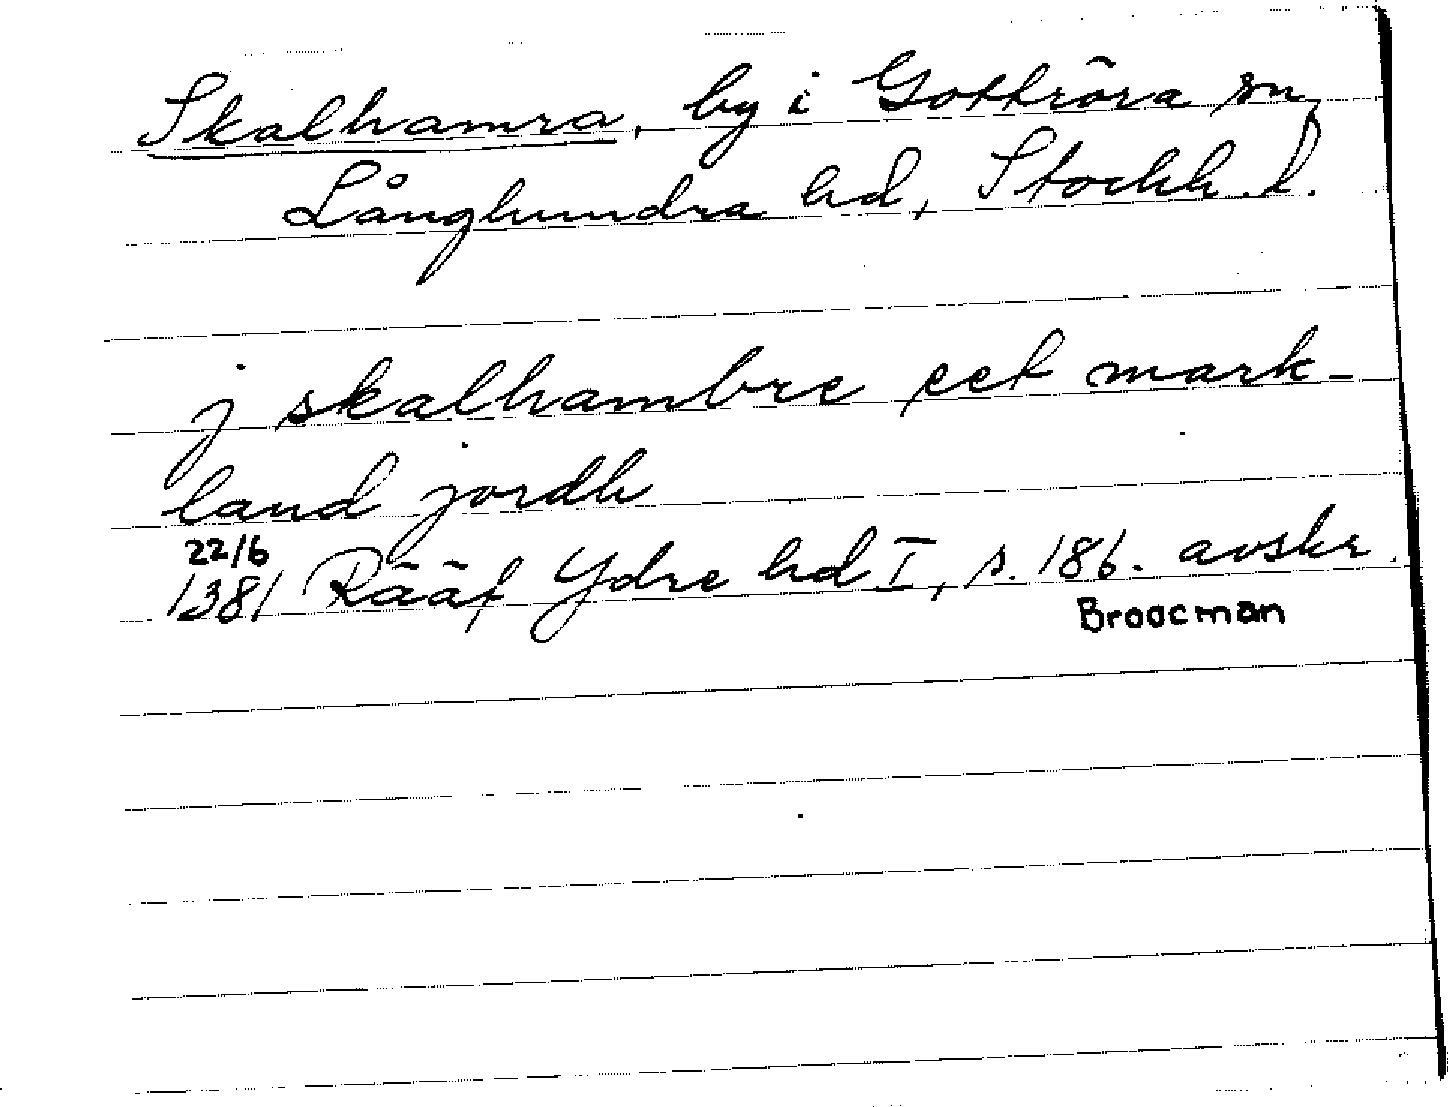 Skalhamra, by i Gottröra sn,
Långhundra hd, Stockh. l.
j skalhambre eet mark-
land jordh
22/6
1381 Rääf Ydre hd I, s. 186. avskr.
Broocman